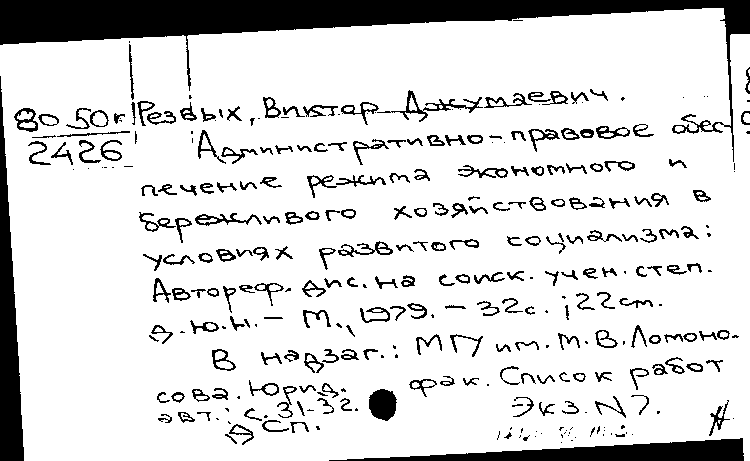 80 50к Резвых, Виктор Джумаевич.
2426 Административно-правовое обес-
печение режима экономного и
бережливого хозяйствования в
условиях развитого социализма:
Автореф. дис. на соиск. учен. степ.
д.ю.н. - М., 1979. - 32с. ; 22см.
В надзаг.: МГУ им. М.В. Ломоно-
сова. Юрид. фак. Список работ
авт.: с. 31-32. Экз. N7.
Д Сп.